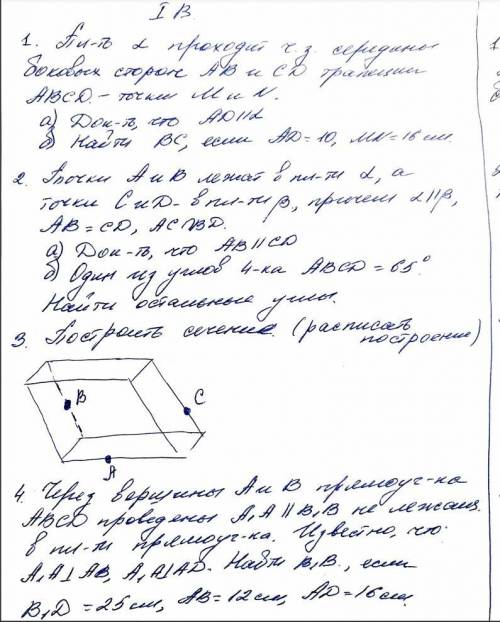 I В.
1. Пл-ть α проходит ч.з. середины
боковых сторон AB и CD трапеции
ABCD - точки M и N.
а) Док-ть, что AD∥α
б) Найти BC, если AD=10, MN=16см.
2. Точки A и B лежат в пл-ти α, а
точки C и D - в пл-ти β, причем α∥β,
AB=CD, AC∩BD.
а) Док-ть, что AB∥CD
б) Один из углов 4-ка ABCD=65°
Найти остальные углы.
3. Построить сечение. (расписать
построение)
B
C
A
4. Через вершины A и B прямоуг-ка
ABCD проведены A₁A∥B₁B не лежащ.
в пл-ти прямоуг-ка. Известно, что
A₁A⊥AB, A₁A⊥AD. Найти B₁B, если
B₁D=25см, AB=12см, AD=16см.